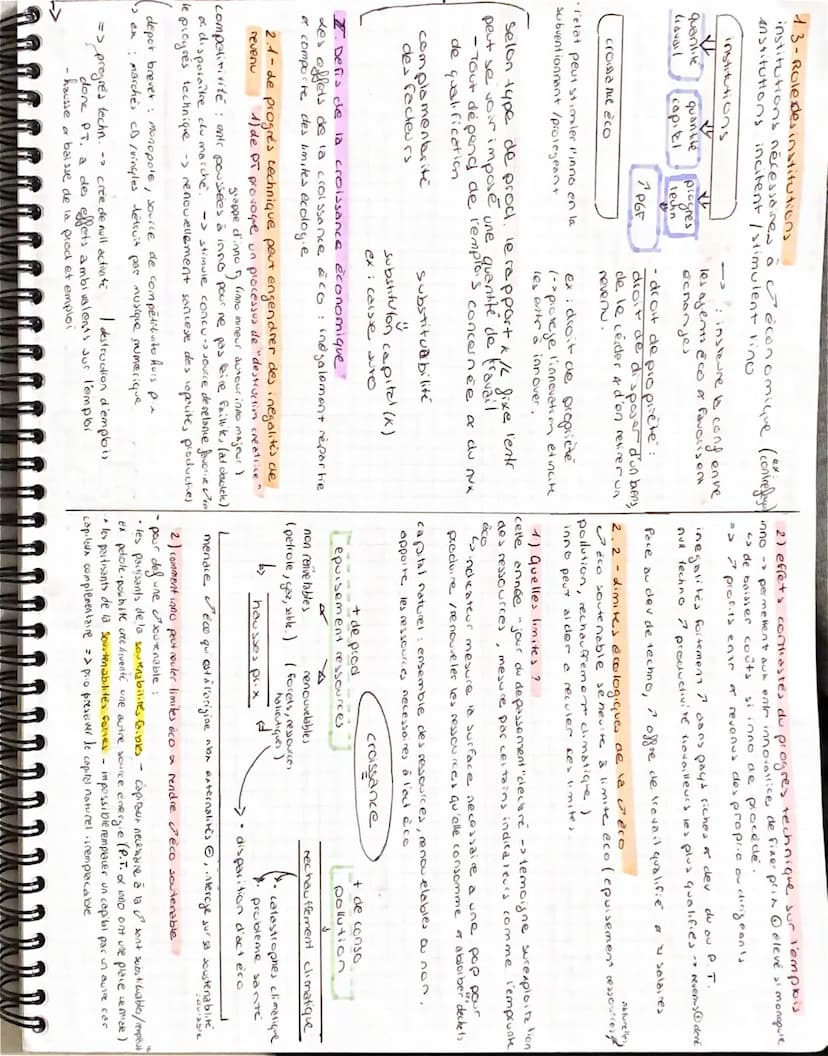 1.3 - Rôle des institutions
institutions nécessaires à ↗ économique (ex:
institutions incitent / stimulent l'inno
institutions
quantité travail
quantité capital
progrès techn
↗ PGF
croissance éco
→ : instaure la confiance
les agents éco et favorisent
échanges
- droit de propriété :
droit de disposer d'un bien,
de le céder et d'en retirer un
revenu.
ex : droit de propriété
(→ protège l'innovation et incite
les entr à innover.
• l'état peut stimuler l'inno en la
subventionnant / protégeant
Selon type de prod. le rapport K/L fixe l'entr
peut se voir imposé une quantité de travail
- Tout dépend de l'emplois concernée et du nvx
de qualification
complémentarité
des facteurs
substituabilité
substitution capital (K)
ex : caisse auto
II. Défis de la croissance économique
des effets de la croissance éco : inégalement répartie
et comporte des limites écologie
2.1 - Le progrès technique peut engendrer des inégalités de
revenu
1) Le PT provoque un processus de "destruction créatrice"
grappe d'inno (inno mineur autour inno majeur)
compétitivité : entr poussées à inno pour ne pas faire faillite
et disparaître du marché. → stimule concu
le progrès technique → renouvellement constant des capacités productives
dépot brevet : monopole, source de compétitivité hors px
↳ ex : marchés CD/vinyles détruit par musique numérique
=> progrès techn. → crée de nvll activité / destruction d'emplois
donc P.T. a des effets ambivalents sur l'emploi
- hausse et baisse de la prod et emploi
2) effets contrastés du progrès technique sur l'emplois
inno → permettent aux entr innovatrices de fixer prix ⊕ élevé si monopole
↳ de baisser coûts si inno de procédé.
=> ↗ profits entr et revenus des proprio ou dirigeants
inégalités fortement ↗ dans pays riches et dev du au P.T.
nvx techno ↗ productivité travailleurs les plus qualifiés → revenus ⊕
Face au dev de techno, ↗ offre de travail qualifié et ↗ salaires
2.2 - Limites écologiques de la ↗ éco
naturelles
↗ éco soutenable se heurte à limite éco (épuisement ressources
pollution, réchauffement climatique)
inno peut aider a reculer ces limites.
1) Quelles limites ?
cette année "jour du dépassement" déclaré → témoigne surexploitation
des ressources, mesure par certains indicateurs comme l'emprunte
éco
↳ indicateur mesure la surface nécessaire a une pop pour
produire / renouveler les ressources qu'elle consomme et absorber déchets
capital naturel : ensemble des ressources, renouvelables ou non.
apporte les ressources nécessaires à l'act éco
croissance
+ de prod
+ de conso
épuisement ressources
pollution
non renouvelables
(pétrole, gaz, sable..)
renouvelables
(forêts, ressources
halieutiques)
réchauffement climatique
hausses prix
• catastrophes climatique
• problème santé
• disparition d'act éco
menace ↗ éco qui est à l'origine nvx externalités ⊖, interroge sur sa soutenabilité
2) comment inno peut reculer limites éco et rendre ↗ éco soutenable
- pour def une ↗ soutenable :
• les partisans de la soutenabilité faibles - capitaux nécessaire à la ↗ sont substituables
ex pétrole - possibilité d'inventé une autre source énergie (P.T. et inno ont une place centrale)
• les partisans de la soutenabilités fortes - impossible remplacer un capital par un autre car
capitaux complémentaire => prio préserver le capital naturel irremplaçable